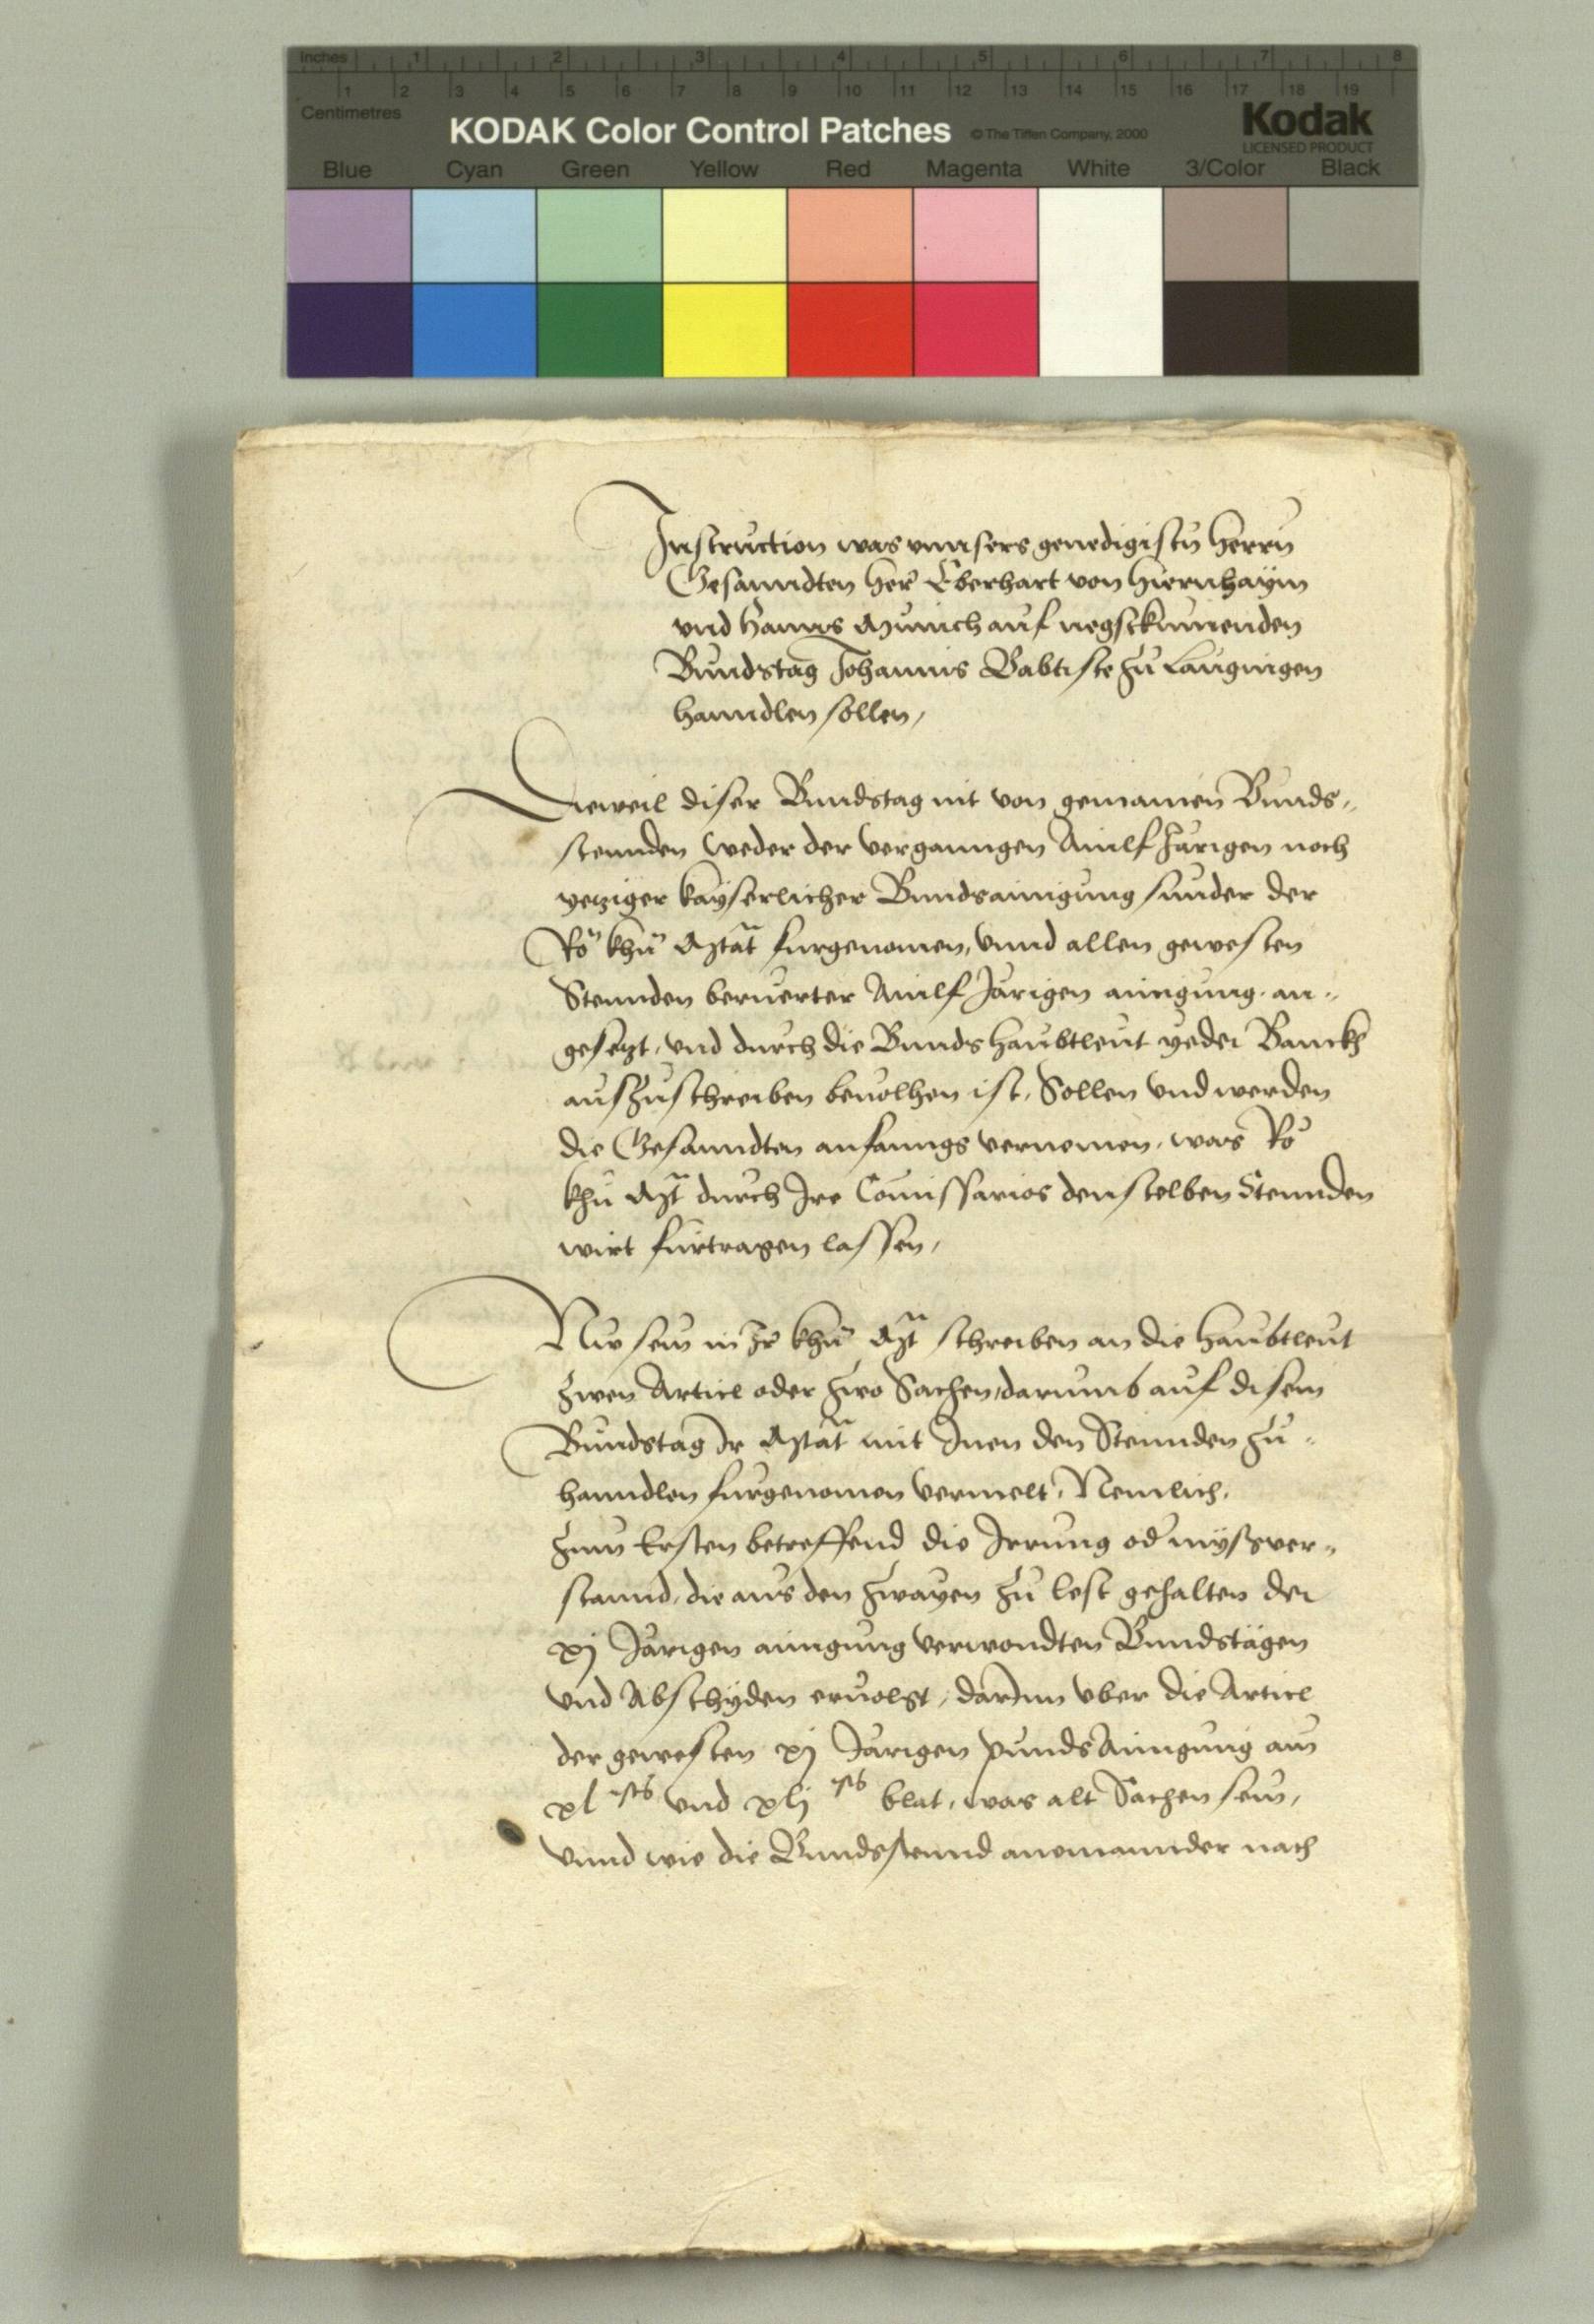 Inches 1 2 3 4 5 6 7 8
1 2 3 4 5 6 7 8 9 10 11 12 13 14 15 16 17 18 19
Centimetres
KODAK Color Control Patches © The Tiffen Company, 2000 Kodak
LICENSED PRODUCT
Blue Cyan Green Yellow Red Magenta White 3/Color Black
Instruction was unnsers genedigistn herrn
Gesanndten her Eberhart von Hiernhaym
und Hanns Münich auf negstkumenden
Bundstag Johannis Babtiste zu Laugingen
hanndlen sollen,
Dieweil diser Bundstag nit von gemainen Bunds-
stennden weder der verganngen Ainlf Järigen noch
yetziger kayserlicher Bundsainigung sunder der
Rö khü Mtāt furgenomen, unnd allen gewesten
Stennden beruerter Ainlf Järigen ainigung an-
gesetzt, und durch die Bunds haubtleut yeder Banckh
auszuschreiben bevolhen ist, Sollen und werden
die Gesanndten anfanngs vernemen, was Rö
khü Mt durch Ire Comissarios denselben Stennden
wirt fürtragen lassen,
Nun sein in Jr khü Mt schreiben an die haubtleut
zwen Articl oder zwo Sachen, darumb auf disem
Bundstag Ir Mtāt mit Inen den Stennden zu-
hanndlen furgenomen vermelt, Nemlich,
zum Ersten betreffend die Irrung od myssver-
stannd, die aus den zwayen zu lest gehalten der
xj Järigen ainigung verwondten Bundstägen
und Abschyden ervolgt, darinn uber die Articl
der gewesten xj Järigen pundsAinigung am
xl und xlj blat, was alt Sachen sein,
unnd wie die Bundsstennd aneinannder nach